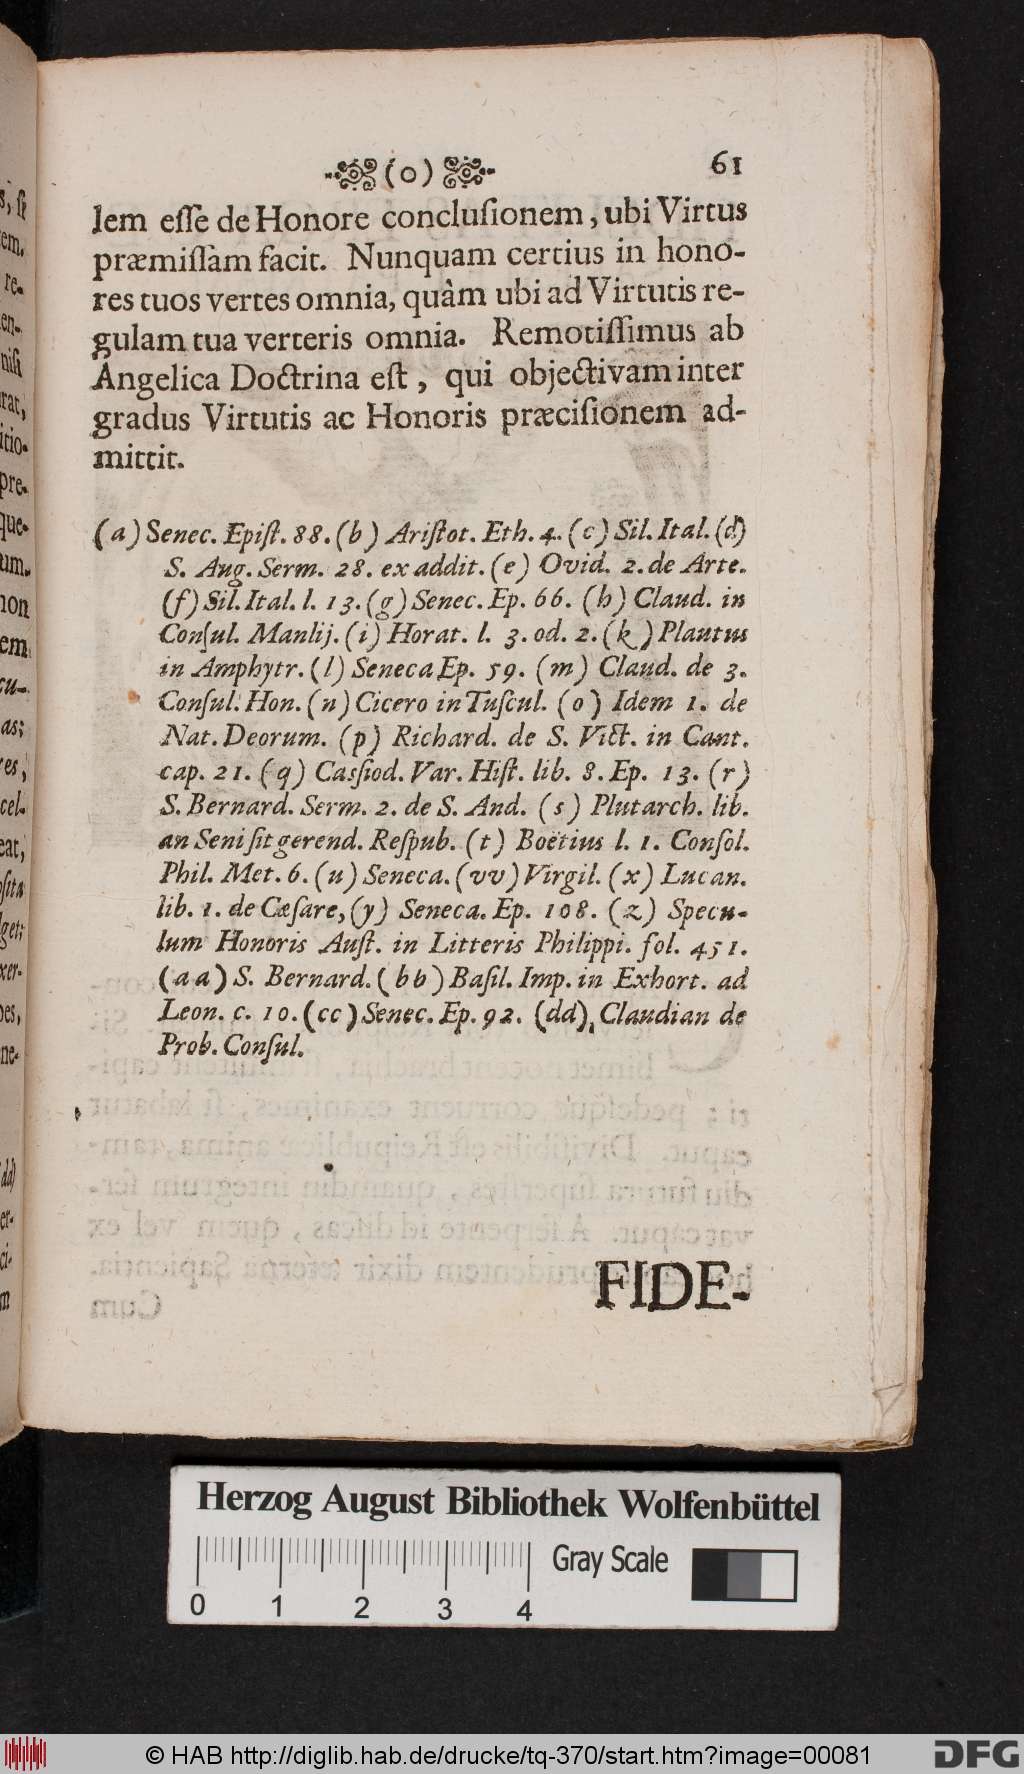 (o) 61
lem eſſe de Honore concluſionem, ubi Virtus
præmiſſam facit. Nunquam certius in hono-
res tuos vertes omnia, quàm ubi ad Virtutis re-
gulam tua verteris omnia. Remotiſſimus ab
Angelica Doctrina eſt, qui objectivam inter
gradus Virtutis ac Honoris præciſionem ad-
mittit.
(a) Senec. Epiſt. 88. (b) Ariſtot. Eth. 4. (c) Sil. Ital. (d)
S. Aug. Serm. 28. ex addit. (e) Ovid. 2. de Arte.
(f) Sil. Ital. l. 13. (g) Senec. Ep. 66. (h) Claud. in
Conſul. Manlij. (i) Horat. l. 3. od. 2. (k) Plautus
in Amphytr. (l) Seneca Ep. 59. (m) Claud. de 3.
Conſul. Hon. (n) Cicero in Tuſcul. (o) Idem 1. de
Nat. Deorum. (p) Richard. de S. Vict. in Cant.
cap. 21. (q) Caſſiod. Var. Hiſt. lib. 8. Ep. 13. (r)
S. Bernard. Serm. 2. de S. And. (s) Plutarch. lib.
an Seni ſit gerend. Reſpub. (t) Boëtius l. 1. Conſol.
Phil. Met. 6. (u) Seneca. (vv) Virgil. (x) Lucan.
lib. 1. de Cæſare, (y) Seneca. Ep. 108. (z) Specu-
lum Honoris Auſt. in Litteris Philippi. fol. 451.
(aa) S. Bernard. (bb) Baſil. Imp. in Exhort. ad
Leon. c. 10. (cc) Senec. Ep. 92. (dd) Claudian de
Prob. Conſul.
FIDE-
Herzog August Bibliothek Wolfenbüttel
Gray Scale
0 1 2 3 4
© HAB http://diglib.hab.de/drucke/tq-370/start.htm?image=00081
DFG